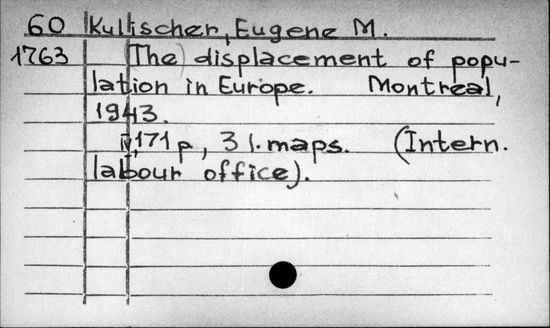 60 Kulischer, Eugene M.
1763 (The) displacement of popu-
lation in Europe. Montreal,
1943.
IV,171 p, 3 l. maps. (Intern.
labour office).